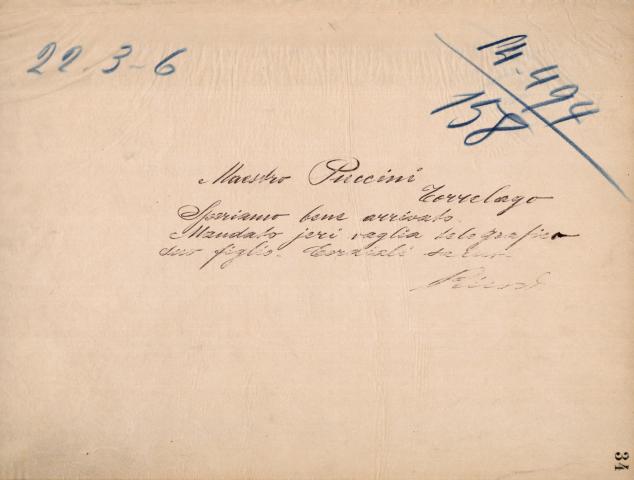 22-3-6
14.494
158
Maestro Puccini
Torrelago
Speriamo bene arrivato.
Mandato jeri vaglia telegrafico
suo figlio. Cordiali saluti
Ricordi
34